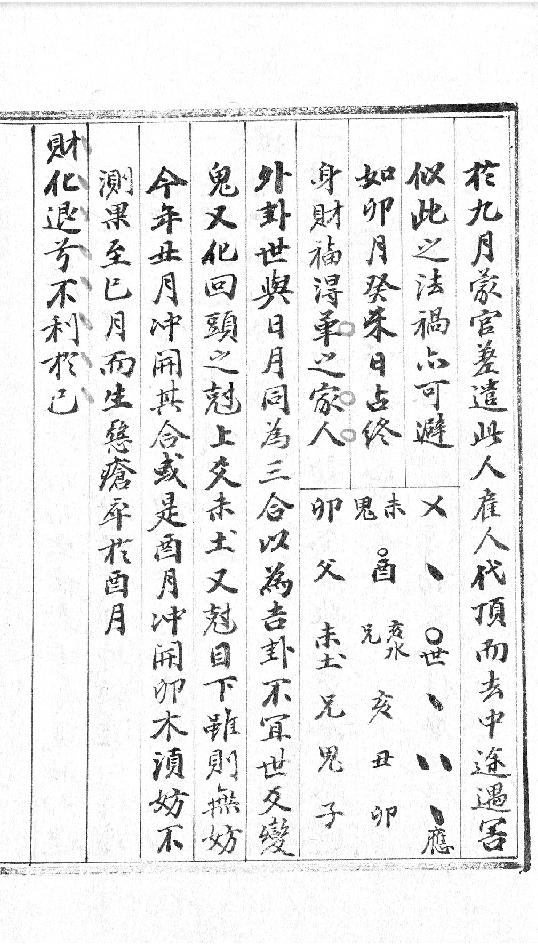 於九月蒙官差遣此人雇人代頂而去中途遇害
似此之法禍亦可避
如卯月癸未日占終
身財福得革之家人
乂 、 〇世 、 、、 、應
未 酉 亥水 亥 丑 卯
鬼 兄
卯 父 未土 兄 鬼 子
外卦世與日月同為三合以為吉卦不宜世爻變
鬼又化回頭之尅上爻未土又尅目下雖則無妨
今年丑月冲開其合或是酉月冲開卯木須妨不
測果至巳月而生 瘡卒於酉月
財化退兮不利於己